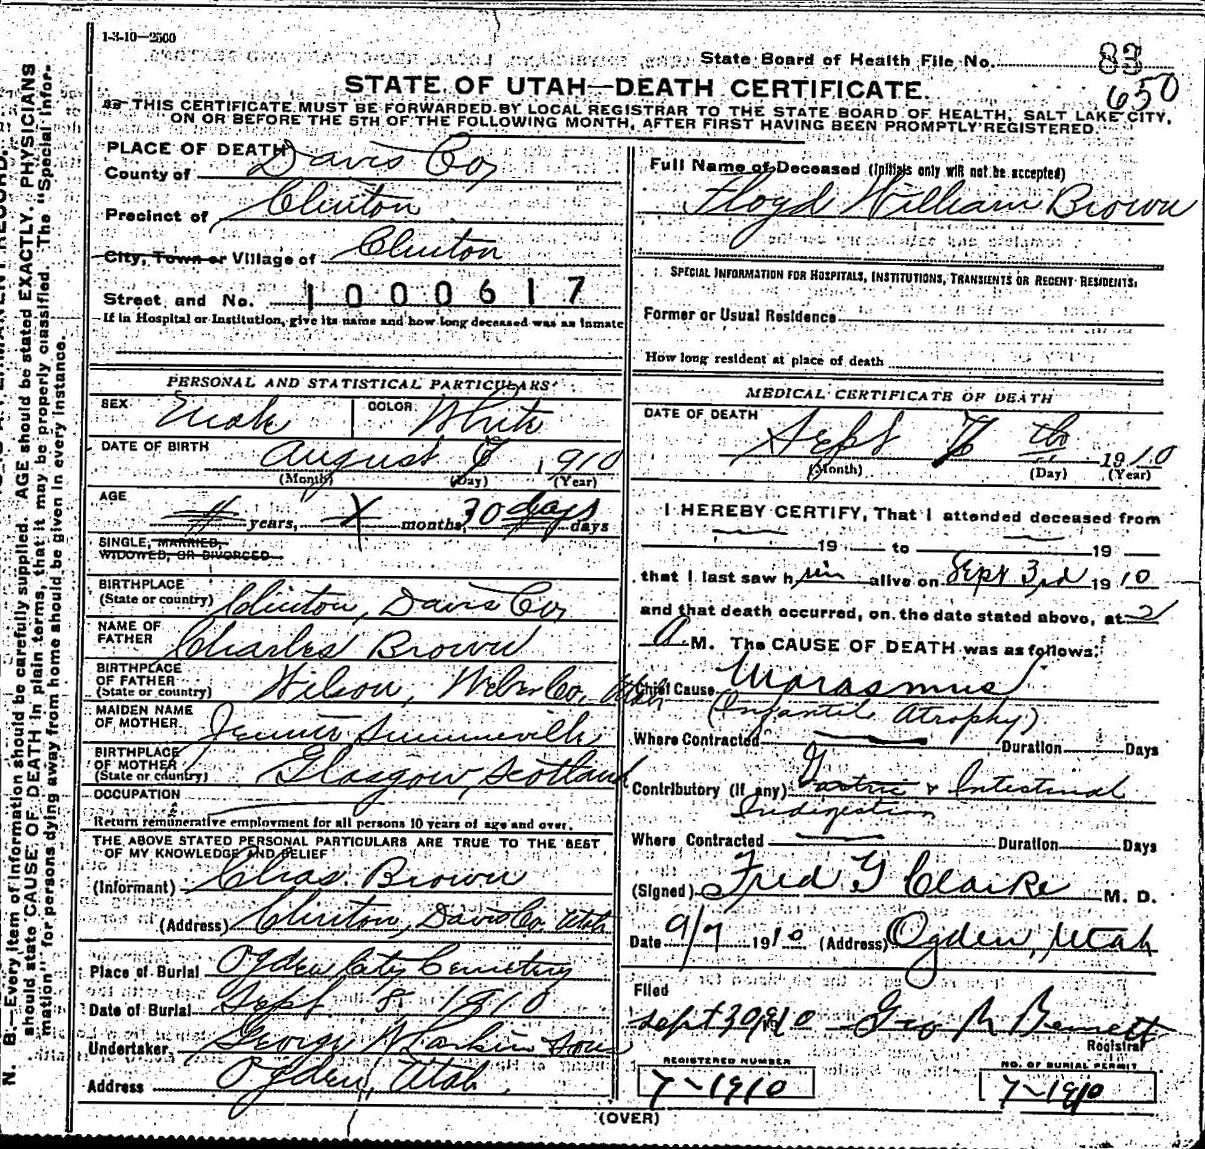 1-3-10—2500
State Board of Health File No. 83
650
STATE OF UTAH—DEATH CERTIFICATE.
THIS CERTIFICATE MUST BE FORWARDED BY LOCAL REGISTRAR TO THE STATE BOARD OF HEALTH, SALT LAKE CITY,
ON OR BEFORE THE 5TH OF THE FOLLOWING MONTH, AFTER FIRST HAVING BEEN PROMPTLY REGISTERED.
PLACE OF DEATH
County of Davis Co,
Precinct of Clinton
City, Town or Village of Clinton
Street and No. 1000617
If in Hospital or Institution, give its name and how long deceased was as inmate
PERSONAL AND STATISTICAL PARTICULARS
SEX Male COLOR White
DATE OF BIRTH August 7 1910
(Month) (Day) (Year)
AGE years, months, 30 days days
SINGLE, MARRIED,
WIDOWED, OR DIVORCED
BIRTHPLACE
(State or country) Clinton, Davis Co,
NAME OF
FATHER Charles Brown
BIRTHPLACE
OF FATHER
(State or country) Wilson, Weber Co, Utah
MAIDEN NAME
OF MOTHER
BIRTHPLACE
OF MOTHER
(State or country) Glasgow, Scotland
OCCUPATION
Return remunerative employment for all persons 10 years of age and over.
THE ABOVE STATED PERSONAL PARTICULARS ARE TRUE TO THE BEST
OF MY KNOWLEDGE AND BELIEF
(Informant) Chas. Brown
(Address) Clinton, Davis Co. Utah
Place of Burial Ogden City Cemetery
Date of Burial Sept 8 1910
Undertaker George W Larkin Sons
Address Ogden, Utah
Full Name of Deceased (Initials only will not be accepted)
Floyd William Brown
SPECIAL INFORMATION FOR HOSPITALS, INSTITUTIONS, TRANSIENTS OR RECENT RESIDENTS.
Former or Usual Residence
How long resident at place of death
MEDICAL CERTIFICATE OF DEATH
DATE OF DEATH
Sept 7 th 1910
(Month) (Day) (Year)
I HEREBY CERTIFY, That I attended deceased from
19 to 19
that I last saw him alive on Sept 3rd 1910
and that death occurred, on the date stated above, at 2
A M. The CAUSE OF DEATH was as follows:
Chief Cause Marasmus
(Infantile Atrophy)
Where Contracted Duration Days
Contributory (if any) Gastric & Intestinal
Indigestion
Where Contracted Duration Days
(Signed) Fred G Clarke M. D.
Date 9/7 1910 (Address) Ogden, Utah
Filed
Sept 30 1910 Geo M Bennett
Registrar
REGISTERED NUMBER
7-1910
NO. OF BURIAL PERMIT
7-1910
(OVER)
N. B.—Every item of information should be carefully supplied. AGE should be stated EXACTLY. PHYSICIANS
should state CAUSE OF DEATH in plain terms, that it may be properly classified. The "Special Infor-
mation" for persons dying away from home should be given in every instance.